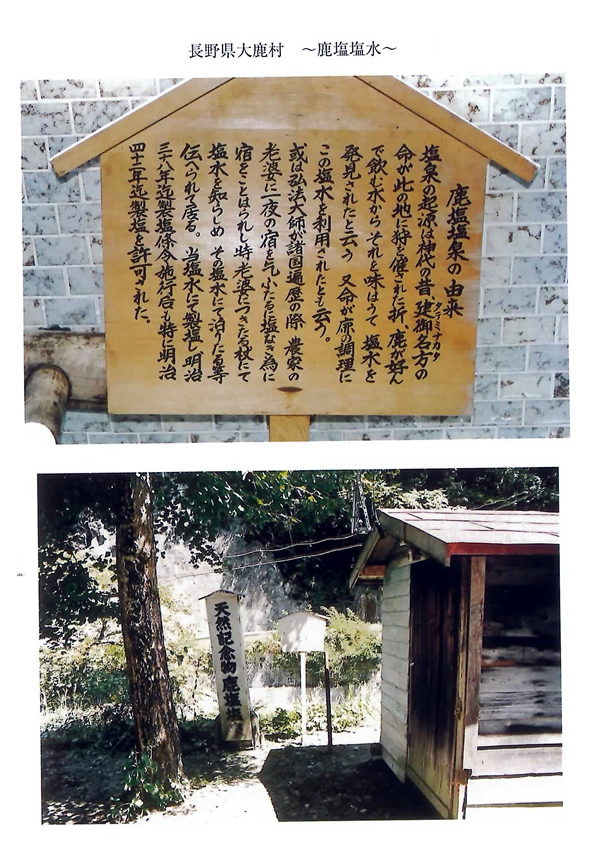 長野県大鹿村　～鹿塩塩水～
鹿塩塩泉の由来
塩泉の起源は神代の昔 建御名方の
タケミナカタ
命が此の地に狩を催された折 鹿が好ん
で飲む水から それを味はうて 塩水を
発見されたと云う 又命が鹿の調理に
この塩水を利用されたとも云う。
或は弘法大師が諸国遍歴の際 農家の
老婆に一夜の宿を乞ふたるに塩なき為に
宿をことはられし時 老婆につきたる杖にて
塩水を知らしめ その塩水にて泊りたる等
伝へられて居る。当塩水にて製塩し 明治
三十八年迄製塩條令施行后も特に明治
四十二年迄製塩を許可された。
天然記念物 鹿塩塩